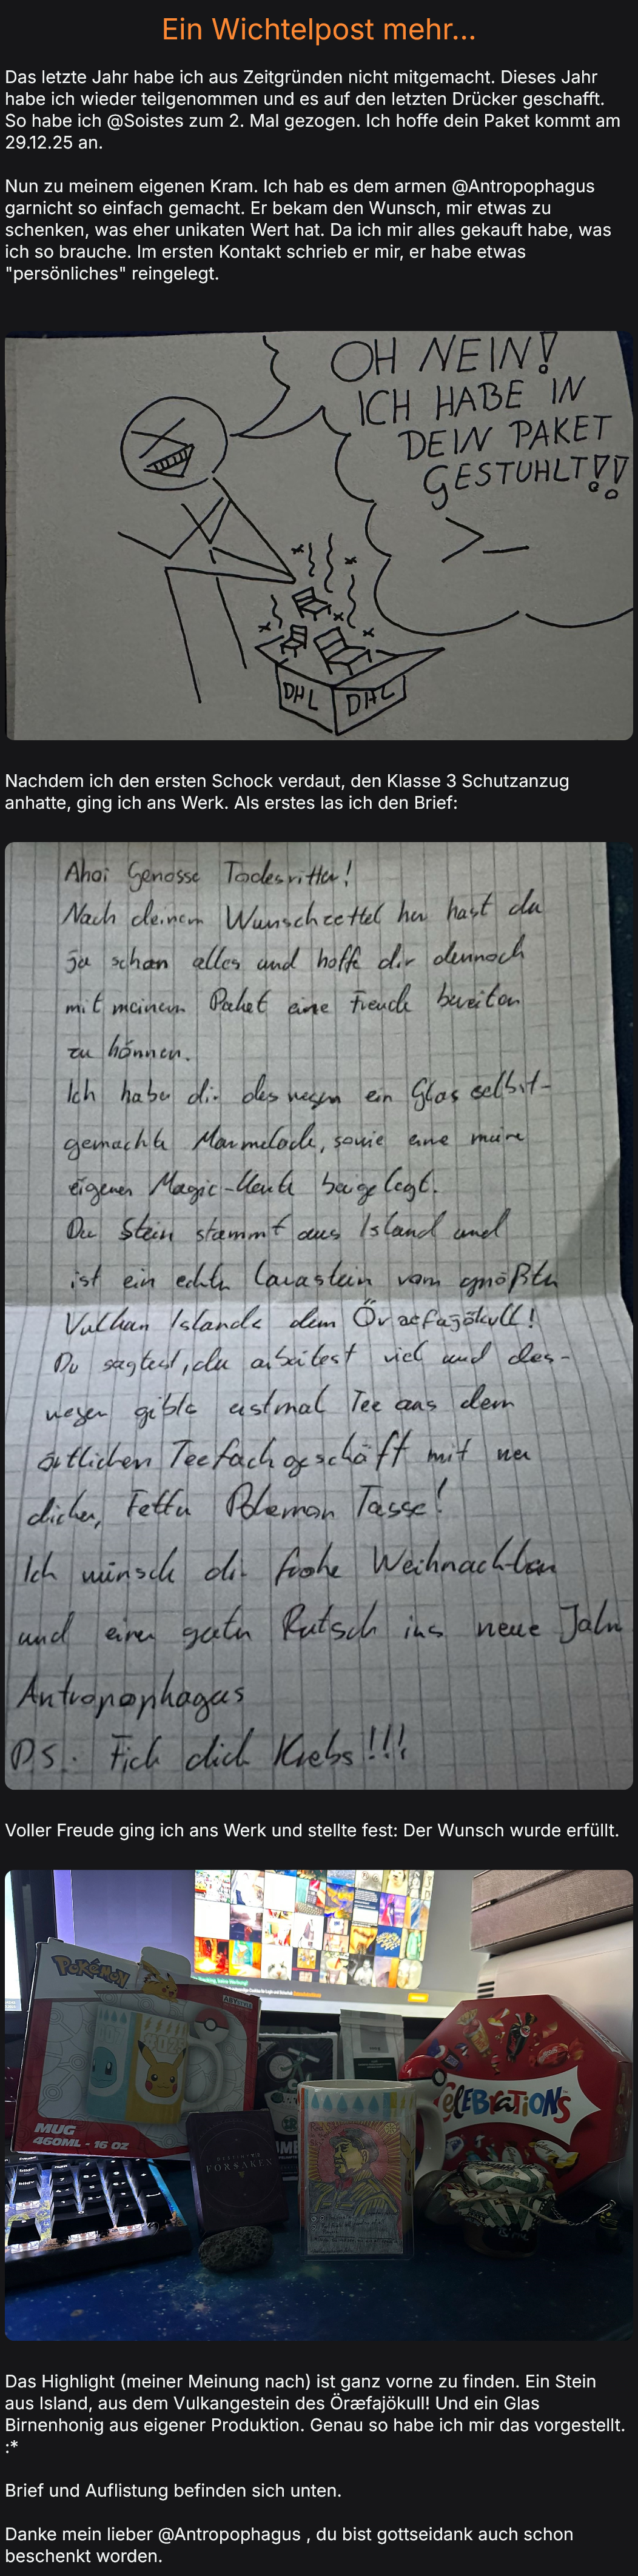 Ein Wichtelpost mehr...
Das letzte Jahr habe ich aus Zeitgründen nicht mitgemacht. Dieses Jahr
habe ich wieder teilgenommen und es auf den letzten Drücker geschafft.
So habe ich @Soistes zum 2. Mal gezogen. Ich hoffe dein Paket kommt am
29.12.25 an.
Nun zu meinem eigenen Kram. Ich hab es dem armen @Antropophagus
garnicht so einfach gemacht. Er bekam den Wunsch, mir etwas zu
schenken, was eher unikaten Wert hat. Da ich mir alles gekauft habe, was
ich so brauche. Im ersten Kontakt schrieb er mir, er habe etwas
"persönliches" reingelegt.
OH NEIN!
ICH HABE IN
DEIN PAKET
GESTUHLT!!
>_
DHL DHL
Nachdem ich den ersten Schock verdaut, den Klasse 3 Schutzanzug
anhatte, ging ich ans Werk. Als erstes las ich den Brief:
Ahoi Genosse Todesritter!
Nach deinem Wunschzettel her hast du
ja schon alles und hoffe dir dennoch
mit meinem Paket eine Freude bereiten
zu können.
Ich habe dir deswegen ein Glas selbst-
gemachte Marmelade, sowie eine meine
eigenen Magic-Karte beigelegt.
Der Stein stammt aus Island und
ist ein echter Lavastein vom größten
Vulkan Islands dem Öraefajökull!
Du sagtest, du arbeitest viel und des-
wegen gibts erstmal Tee aus dem
örtlichen Teefachgeschäft mit ner
dicken, Fetten Pokemon Tasse!
Ich wünsch dir frohe Weihnachten
und einen guten Rutsch ins neue Jahr
Antropophagus
P.S.: Fick dich Krebs!!!
Voller Freude ging ich ans Werk und stellte fest: Der Wunsch wurde erfüllt.
POKÉMON
ABYSTYLE
MUG
460ML - 16 OZ
FORSAKEN
CELEBRATIONS
Das Highlight (meiner Meinung nach) ist ganz vorne zu finden. Ein Stein
aus Island, aus dem Vulkangestein des Öræfajökull! Und ein Glas
Birnenhonig aus eigener Produktion. Genau so habe ich mir das vorgestellt.
:*
Brief und Auflistung befinden sich unten.
Danke mein lieber @Antropophagus , du bist gottseidank auch schon
beschenkt worden.